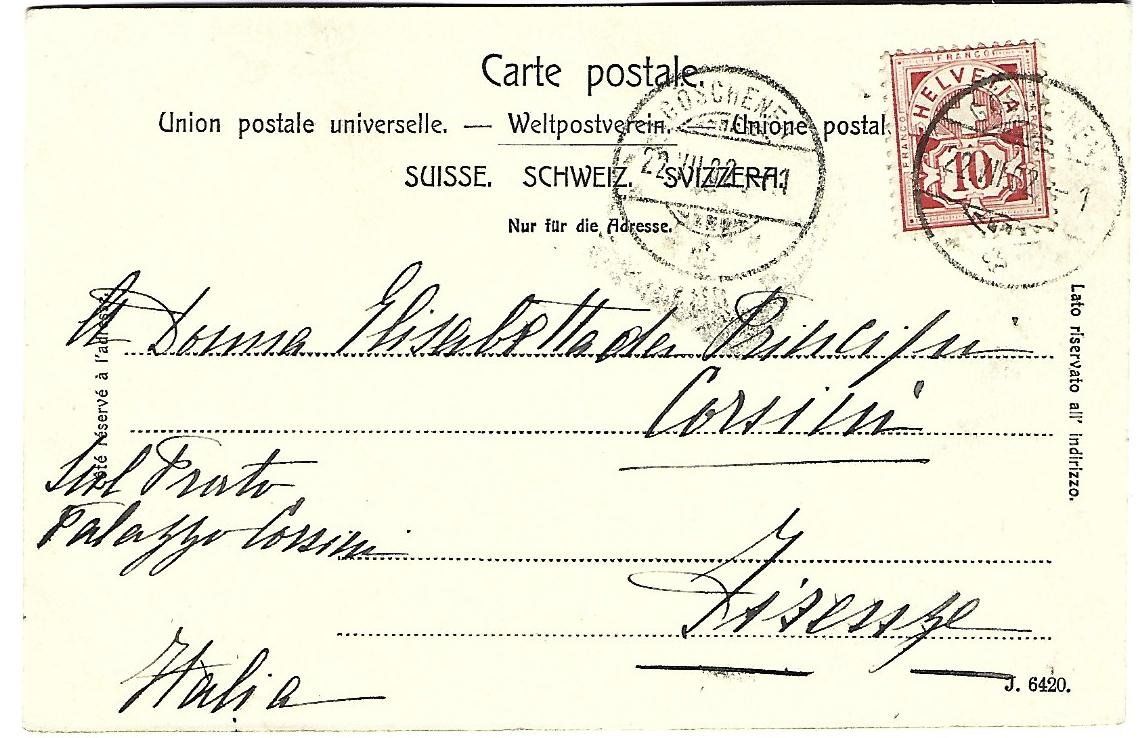 Carte postale.
Union postale universelle. — Weltpostverein. — Unione postal
SUISSE. SCHWEIZ. SVIZZERA.
Nur für die Adresse.
GÖSCHENEN
22.VII.02.-1
FRANCO
FRANCO
HELVETIA
10
22.VII.02.-1
A Donna Elisabetta dei Principi
Corsini
Sul Prato
Palazzo Corsini
Firenze
Italia
Côté réservé à l'adresse.
Lato riservato all' indirizzo.
J. 6420.